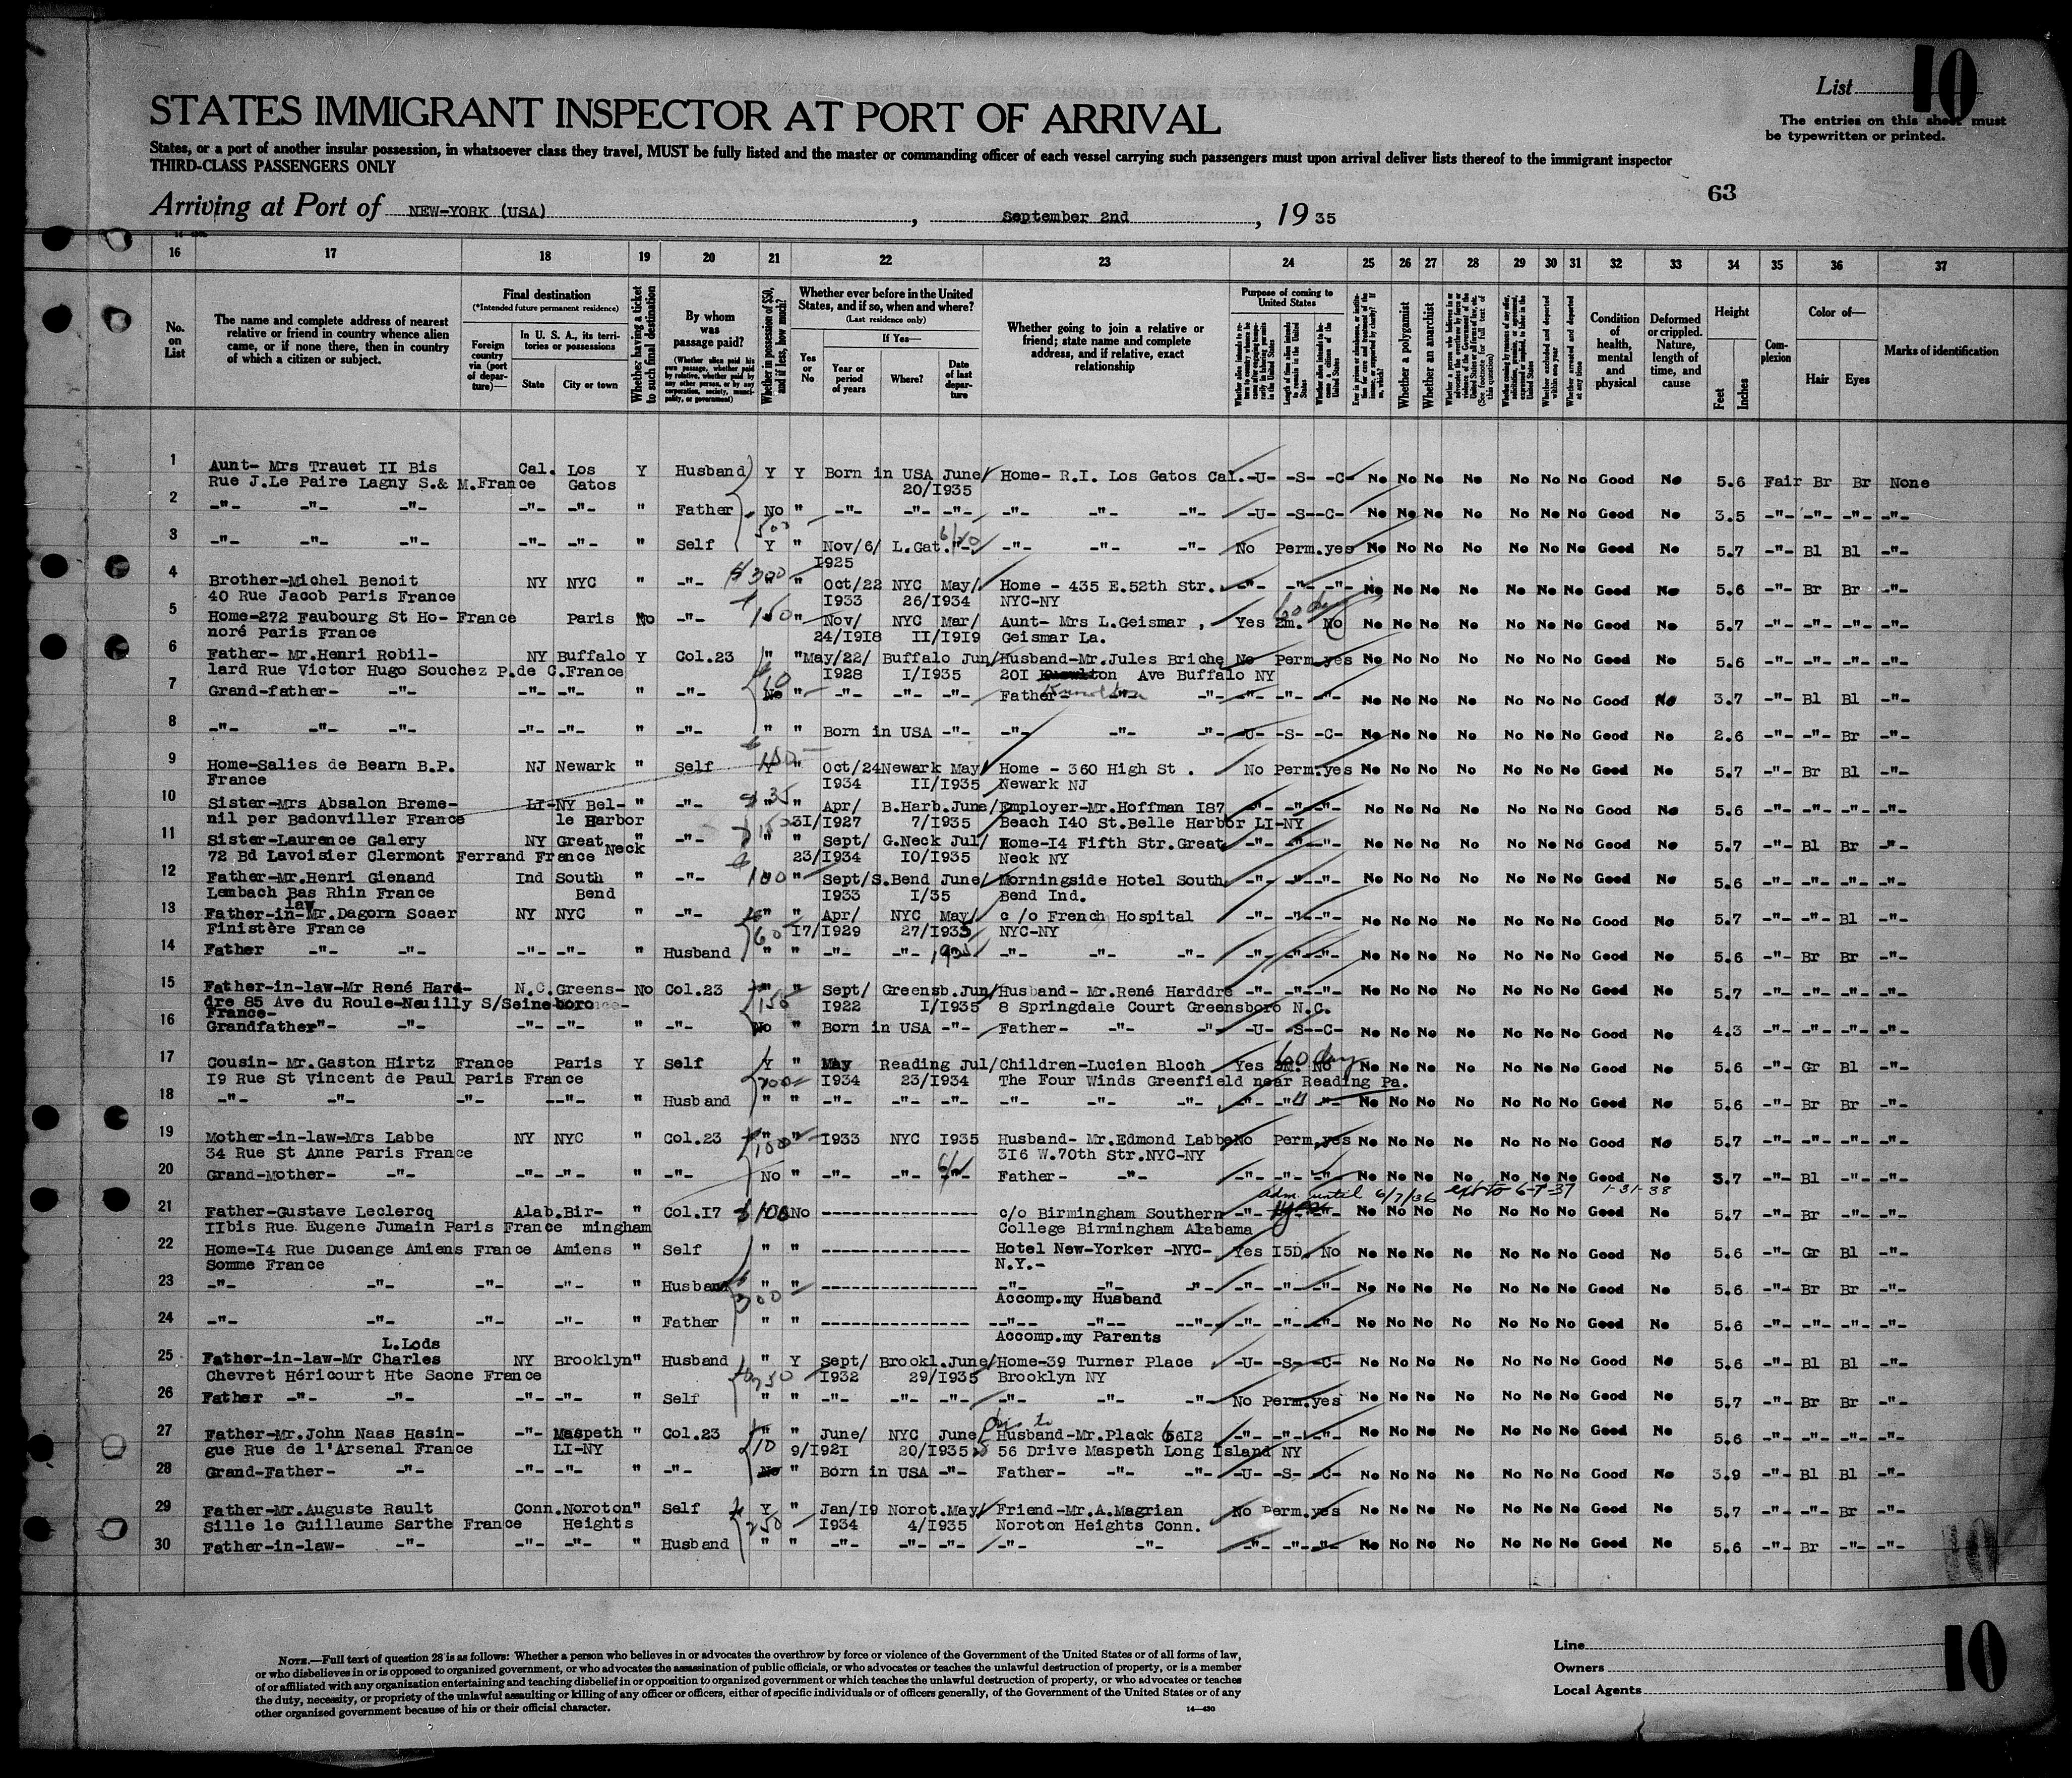 List 10
STATES IMMIGRANT INSPECTOR AT PORT OF ARRIVAL
The entries on this sheet must
be typewritten or printed.
States, or a port of another insular possession, in whatsoever class they travel, MUST be fully listed and the master or commanding officer of each vessel carrying such passengers must upon arrival deliver lists thereof to the immigrant inspector
THIRD-CLASS PASSENGERS ONLY
63
Arriving at Port of NEW-YORK (USA), September 2nd, 19 35
16 17 18 19 20 21 22 23 24 25 26 27 28 29 30 31 32 33 34 35 36 37
No. on List
The name and complete address of nearest relative or friend in country whence alien came, or if none there, then in country of which a citizen or subject.
Final destination
(*Intended future permanent residence)
Foreign country via (port of departure)—
In U. S. A., its territories or possessions
State City or town
Whether having a ticket to such final destination
By whom was passage paid?
(Whether alien paid his own passage, whether paid by relative, whether paid by any other person, or by any corporation, society, municipality, or government)
Whether in possession of $50, and if less, how much?
Whether ever before in the United States, and if so, when and where?
(Last residence only)
Yes or No
If Yes—
Year or period of years Where? Date of last departure
Whether going to join a relative or friend; state name and complete address, and if relative, exact relationship
Purpose of coming to United States
Length of time alien intends to remain in the United States
Whether a polygamist
Whether an anarchist
Condition of health, mental and physical
Deformed or crippled. Nature, length of time, and cause
Height
Feet Inches
Complexion
Color of—
Hair Eyes
Marks of identification
1 Aunt- Mrs Trauet II Bis Cal. Los Y Husband Y Y Born in USA June/ Home- R.I. Los Gatos Cal. -U- -S- -C- No No No No No No No Good No 5.6 Fair Br Br None
Rue J.Le Paire Lagny S.& M.France Gatos 20/I935
2 -"- -"- -"- -"- -"- " Father No " -"- -"- -"- -"- -"- -"- -U- -S- -C- No No No No No No No Good No 3.5 -"- -"- -"- -"-
3 -"- -"- -"- -"- -"- " Self Y " Nov/6/ L.Gat. -"- -"- -"- -"- No Perm.yes No No No No No No No Good No 5.7 -"- Bl Bl -"-
I925
4 Brother-Michel Benoit NY NYC " -"- " " Oct/22 NYC May/ Home - 435 E.52th Str. -"- -"- -"- No No No No No No No Good No 5.6 -"- Br Br -"-
40 Rue Jacob Paris France I933 26/I934 NYC-NY
5 Home-272 Faubourg St Ho- France Paris No -"- 150 " Nov/ NYC Mar/ Aunt- Mrs L.Geismar , Yes 2m. No No No No No No No No Good No 5.7 -"- -"- -"- -"-
noré Paris France 24/I918 II/I919 Geismar La.
6 Father- Mr.Henri Robil- NY Buffalo Y Col.23 " " May/22/ Buffalo Jun/ Husband-Mr.Jules Briche No Perm.yes No No No No No No No Good No 5.6 -"- -"- -"- -"-
lard Rue Victor Hugo Souchez P.de C.France I928 I/I935 20I Ave Buffalo NY
7 Grand-father- -"- -"- -"- " -"- No " -"- -"- -"- Father- -"- -"- -"- -"- -"- No No No No No No No Good No 3.7 -"- Bl Bl -"-
8 -"- -"- -"- -"- -"- " -"- " " Born in USA -"- -"- -"- -"- -U- -S- -C- No No No No No No No Good No 2.6 -"- -"- Br -"-
9 Home-Salies de Bearn B.P. NJ Newark " Self Y " Oct/24 Newark May/ Home - 360 High St . No Perm.yes No No No No No No No Good No 5.7 -"- Br Bl -"-
France I934 II/I935 Newark NJ
10 Sister-Mrs Absalon Breme- LI-NY Bel- " -"- $ 35 " " Apr/ B.Harb.June/ Employer-Mr.Hoffman I87 -"- -"- -"- No No No No No No No Good No 5.6 -"- -"- -"- -"-
nil per Badonviller France le Harbor 3I/I927 7/I935 Beach I40 St.Belle Harbor LI-NY
11 Sister-Laurence Galery NY Great Neck " -"- " " Sept/ G.Neck Jul/ Home-I4 Fifth Str.Great -"- -"- -"- No No No No No No No Good No 5.7 -"- Bl Br -"-
72 Bd Lavoisier Clermont Ferrand France 23/I934 I0/I935 Neck NY
12 Father-Mr.Henri Gienand Ind South " -"- 100 " Sept/ S.Bend June/ Morningside Hotel South -"- -"- -"- No No No No No No No Good No 5.6 -"- -"- -"- -"-
Lembach Bas Rhin France Bend I933 I/35 Bend Ind.
13 Father-in-law Mr.Dagorn Scaer NY NYC " -"- " " Apr/ NYC May/ c/o French Hospital -"- -"- -"- No No No No No No No Good No 5.7 -"- -"- Bl -"-
Finistère France 60 I7/I929 27/I935 NYC-NY
14 Father -"- -"- -"- -"- " Husband " " -"- -"- -"- -"- -"- -"- -"- -"- No No No No No No No Good No 5.6 -"- Br Br -"-
15 Father-in-law-Mr René Hard- N.C. Greens- No Col.23 " " Sept/ Greensb.Jun/ Husband- Mr.René Harddre -"- -"- -"- No No No No No No No Good No 5.7 -"- -"- -"- -"-
dre 85 Ave du Roule-Neuilly S/Seine boro I922 I/I935 8 Springdale Court Greensboro N.C.
France-
16 Grandfather"- -"- -"- -"- " -"- No " Born in USA -"- Father- -"- -"- -U- -S- -C- No No No No No No No Good No 4.3 -"- -"- -"- -"-
17 Cousin- Mr.Gaston Hirtz France Paris Y Self Y " May Reading Jul/ Children-Lucien Bloch Yes 60 day No No No No No No No No Good No 5.6 -"- Gr Bl -"-
I9 Rue St Vincent de Paul Paris France 200 I934 23/I934 The Four Winds Greenfield near Reading Pa.
18 -"- -"- -"- -"- " Husband " " -"- -"- -"- -"- -"- -"- -"- -"- -"- No No No No No No No Good No 5.6 -"- Br Br -"-
19 Mother-in-law-Mrs Labbe NY NYC " Col.23 " " I933 NYC I935 Husband- Mr.Edmond Labbe No Perm.yes No No No No No No No Good No 5.7 -"- -"- -"- -"-
34 Rue St Anne Paris France 100 3I6 W.70th Str.NYC-NY
20 Grand-Mother- -"- -"- -"- " -"- No " -"- -"- Father- -"- -"- -"- -"- No No No No No No No Good No 3.7 -"- Bl -"- -"-
adm. until 6/7/36 ext to 6-7-37 1-31-38
21 Father-Gustave Leclercq Alab. Bir- " Col.I7 $100 No --------------- c/o Birmingham Southern -"- -"- No No No No No No No Good No 5.7 -"- Br -"- -"-
IIbis Rue Eugene Jumain Paris France mingham College Birmingham Alabama
22 Home-I4 Rue Ducange Amiens France Amiens " Self " " --------------- Hotel New-Yorker -NYC- Yes I5D. No No No No No No No No Good No 5.6 -"- Gr Bl -"-
Somme France N.Y.-
23 -"- -"- -"- -"- " Husband " " --------------- -"- -"- -"- -"- -"- -"- No No No No No No No Good No 5.6 -"- Br Br -"-
300 Accomp.my Husband
24 -"- -"- -"- -"- " Father " " --------------- --"-- -"-- --"-- -"- -"- -"- No No No No No No No Good No 5.6 -"- -"- -"- -"-
Accomp.my Parents
L.Lods
25 Father-in-law-Mr Charles NY Brooklyn " Husband " Y Sept/ Brookl.June/ Home-39 Turner Place -U- -S- -C- No No No No No No No Good No 5.6 -"- Bl Bl -"-
Chevret Héricourt Hte Saone France I932 29/I935 Brooklyn NY
26 Father -"- -"- -"- -"- " Self " " -"- -"- -"- -"- -"- -"- No Perm.yes No No No No No No No Good No 5.7 -"- Br Br -"-
27 Father-Mr.John Naas Hasin- -"- Maspeth " Col.23 " " June/ NYC June/ Husband-Mr.Plack 66I2 -"- -"- -"- No No No No No No No Good No 5.6 -"- -"- -"- -"-
gue Rue de l'Arsenal France LI-NY 10 9/I92I 20/I935 56 Drive Maspeth Long Island NY
28 Grand-Father- -"- -"- -"- " -"- No " Born in USA -"- Father- -"- -"- -U- -S- -C- No No No No No No No Good No 3.9 -"- Bl Bl -"-
29 Father-Mr.Auguste Rault Conn. Noroton " Self Y " Jan/I9 Norot.May/ Friend-Mr.A.Magrian No Perm.yes No No No No No No No Good No 5.7 -"- -"- Br -"-
Sille le Guillaume Sarthe France Heights 250 I934 4/I935 Noroton Heights Conn.
30 Father-in-law- -"- -"- -"- " Husband " " -"- -"- -"- -"- -"- -"- -"- -"- No No No No No No No Good No 5.6 -"- Br -"- -"-
NOTE.—Full text of question 28 is as follows: Whether a person who believes in or advocates the overthrow by force or violence of the Government of the United States or of all forms of law,
or who disbelieves in or is opposed to organized government, or who advocates the assassination of public officials, or who advocates or teaches the unlawful destruction of property, or is a member
of or affiliated with any organization entertaining and teaching disbelief in or opposition to organized government or which teaches the unlawful destruction of property, or who advocates or teaches
the duty, necessity, or propriety of the unlawful assaulting or killing of any officer or officers, either of specific individuals or of officers generally, of the Government of the United States or of any
other organized government because of his or their official character.
14—430
Line
Owners
Local Agents
10